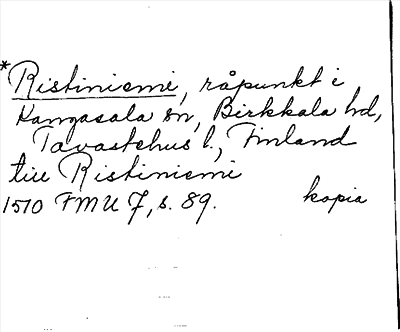 *Ristiniemi, råpunkt i
Kangasala sn, Birkkala hd,
Tavastehus l., Finland
till Ristiniemi
1510 FMU 7, s. 89. kopia